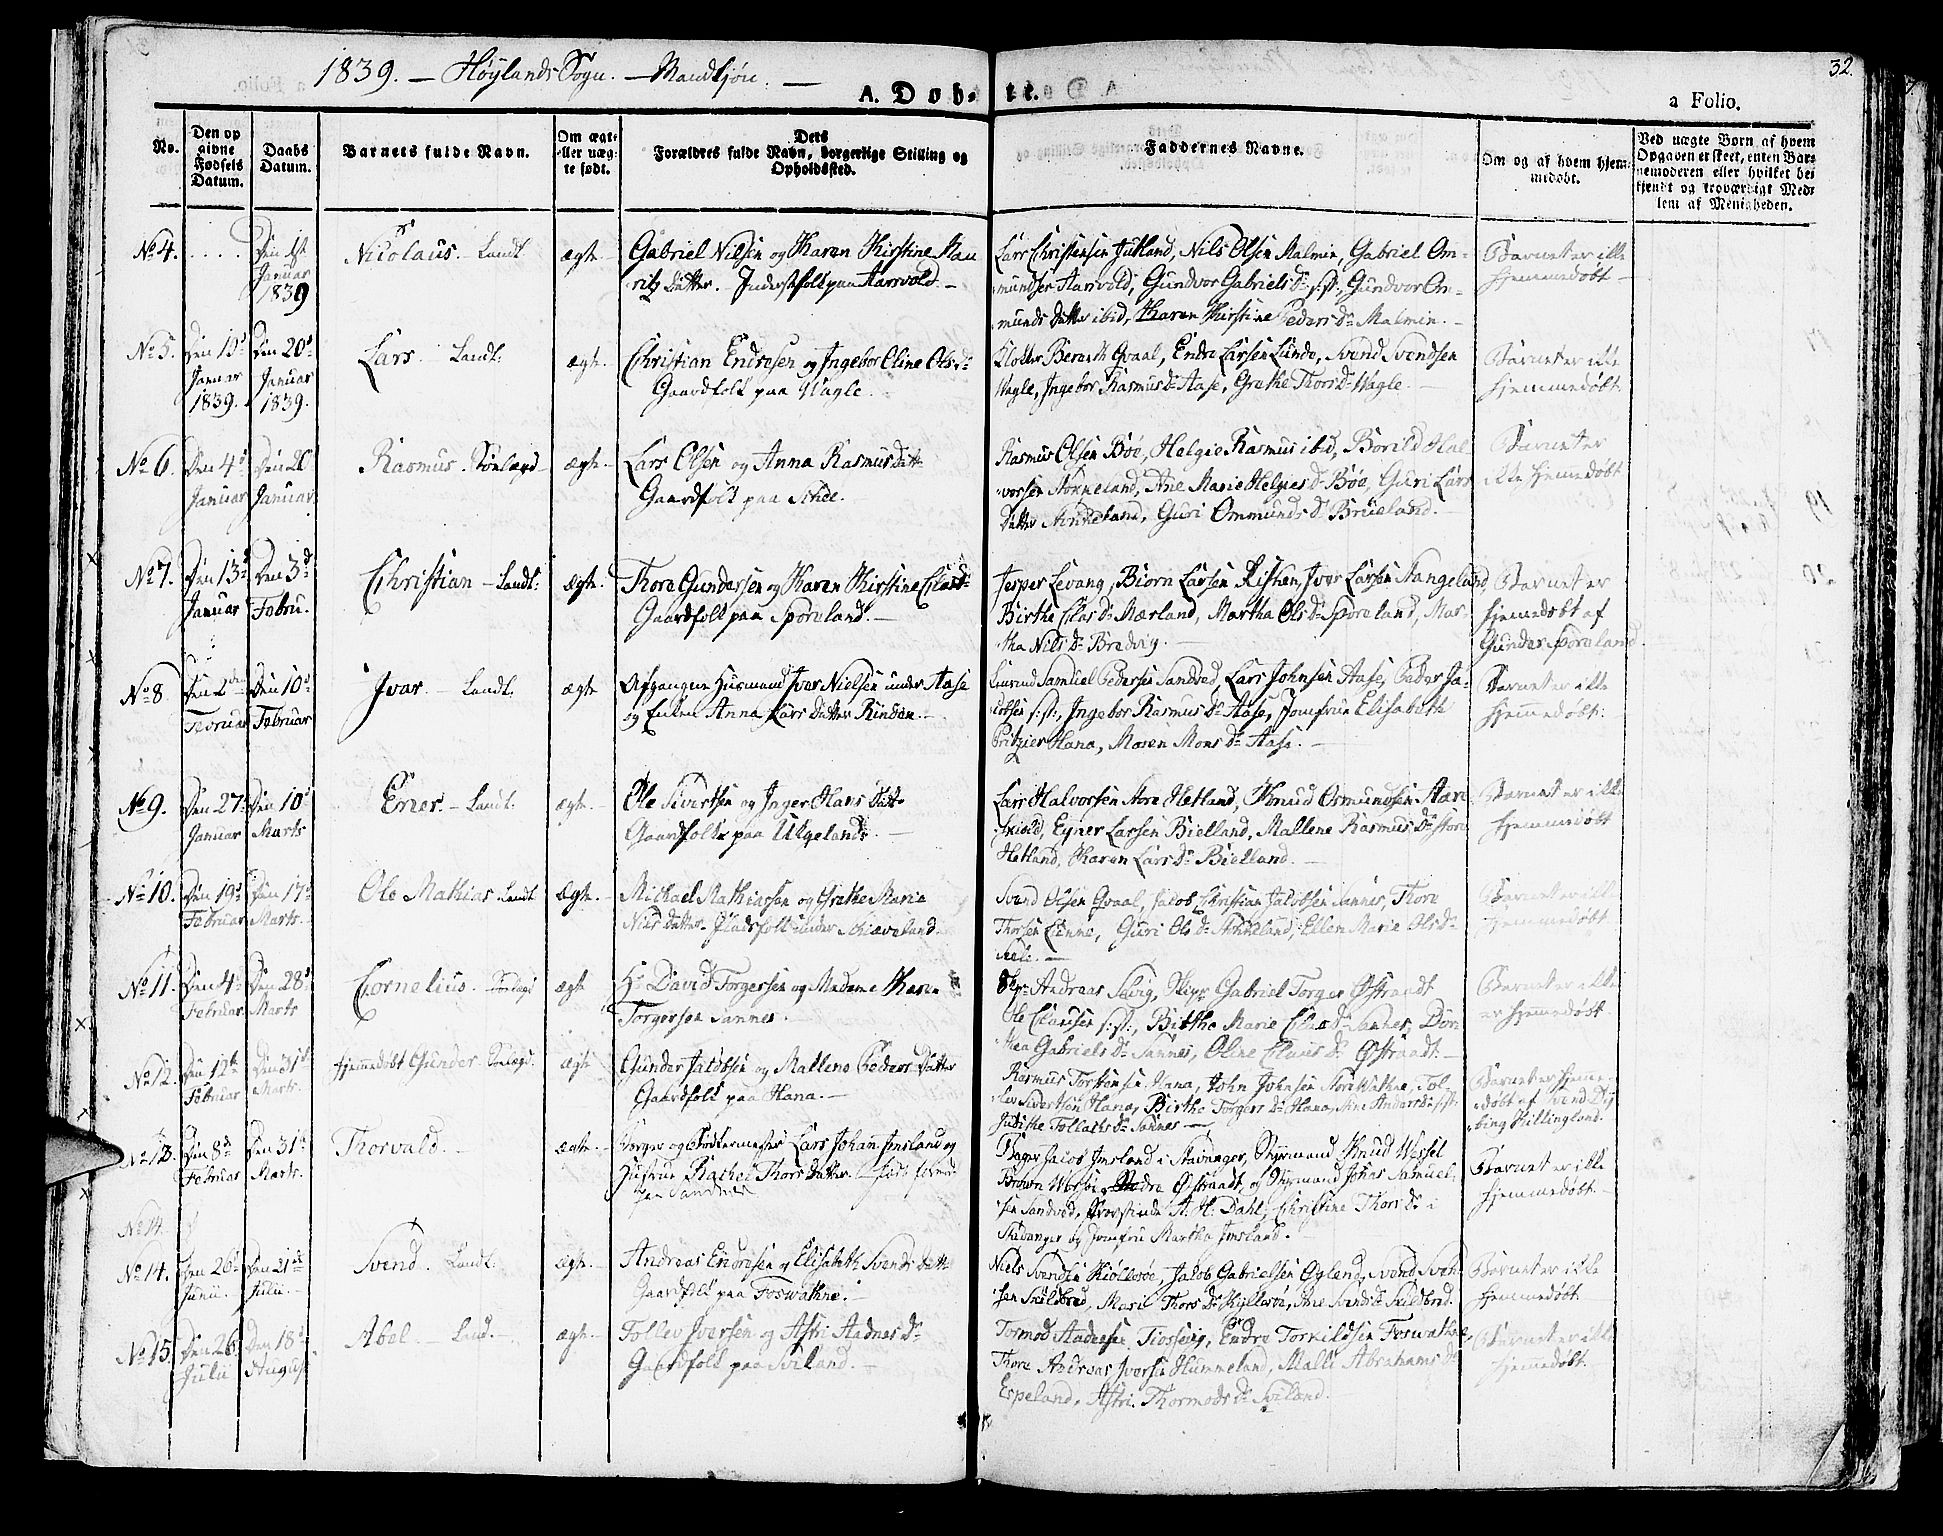 32.
1839. — Høylands Sogn. — Mandkjøn. —
A. Døb-te.
a Folio.
No.
Den op
givne
Fødsels
Datum.
Daabs
Datum.
Barnets fulde Navn.
Om ægte
eller uæg-
te født.
Dets
Forældres fulde Navn, borgerlige Stilling og
Opholdssted.
Faddernes Navne.
Om og af hvem hjem-
medøbt.
Ved uægte Børn af hvem
Opgaven er skeet, enten Bar-
nemoderen eller hvilket be-
kjendt og troværdigt Med-
lem af Menigheden.
No 4.
. . . .
Den 1st
Januar
1839
Nicolaus - Landt
ægte
Gabriel Nilsen og Karen Kirstine Mau
ritz Datter. Inderstfolk paa Aarsvold. —
Lars Christensen Jutland, Nils Olsen Malmin, Gabriel Om-
mundsen Aarsvold, Gundvor Gabriels Dr s:st:, Gundvor Om-
munds Datter ibid, Karen Kirstine Peders Dr Malmin. —
Barnet er ikke
hjemmedøbt —
No 5.
Den 19d
Januar
1839.
Den 20d
Januar
1839.
Lars. Landt.
ægte.
Christian Endresen og Ingebor Eline Ols Dr
Gaardfolk paa Wagle.
Klokker Berendt Gvaal, Endre Larsen Lunde, Svend Svendsen
Wagle, Ingebor Rasmus Dr Aase, Grethe Thors Dr Wagle. —
Barnet er ikke
hjemmedøbt
No 6.
Den 4d
Januar
Den 20
Januar.
Rasmus. Sønlægd
ægte.
Lars Olsen og Anna Rasmus Datter
Gaardfolk paa
Rasmus Olsen Bøe, Helgie Rasmus ibid, Borild Hal
vorsen Hoppeland, Ane Marie Helgies Dr Bøe, Guri Lars
Datter Ankeland, Guri Ommunds Dr Brueland. —
Barnet er
ikke hjemedøbt
No 7.
Den 13d
Januar
Den 3d
Febru.
Christian — Landt:
ægte.
Thore Gundersen og Karen Kirstine
Gaardfolk paa Sporeland. —
Jesper Levang, Biørn Larsen Risken, Ivar Larsen Stangeland,
Birthe Elias Dr Mærland, Martha Ols Dr Sporeland, Mar-
tha Nils Dr Bredvig. —
Barnet er
hjemedøbt af
Gunder Sporeland.
No 8
Den 2den
Februar
Den 10d
Februar
Ivar. — Landt.
ægte
Afgangne Husmand Ivar Nielsen under Aase
og Enken Anna Lars Datter Rinden. —
Samuel Pedersen Sandved, Lars Johnsen Aase, Peder Ja-
cobsen s:st:, Ingebor Rasmus Dr Aase, Jomfrue Elisabeth
Pritzier Hana, Maren Mons Dr Aase. —
Barnet er ikke
hjemedøbt:
No 9.
Den 27
Januar
Den 10d
Marts
Ener. — Landt.
ægte.
Ole Sivertsen og Inger Hans Datter
Gaardfolk paa Utgeland. —
Lars Halvorsen Store Hetland, Knud Osmundsen Aars
vold, Egner Larsen Bielland, Mallene Rasmus Dr Store
Hetland, Karen Lars Dr Bielland. —
Barnet er ikke
hjemmedøbt
No 10.
Den 19d
Februar
Den 17d
Marts.
Ole Mathias Landt
Ægte.
Michael Mathiassen og Grethe Marie
Nils Datter. Pladsfolk under Skiæveland.
Svend Olsen Gvaal, Jacob Christian Jacobsen Sannes, Thore
Thorsen Lunne, Guri Ols Dr Ankeland, Ellen Marie Ols Dr
Barnet er ikke
hjemmedøbt
No 11.
Den 4d
Februar
Den 28d
Marts
Cornelius. Sønlægd
ægte
Hr David Torgersen og Madame Karen
Torgersen Sannes. —
Andreas Selvig, Skipr Gabriel Torger Østraadt
Ole Clausen s:st:, Birthe Marie Elias Dr Sannes, Dor
thea Gabriels Dr Sannes, Oline Claus Dr Østraadt. —
Barnet er ikke
er hjemmedøbt
No 12.
Den 12te
Februar
Den 31st
Marts.
hjemmedøbt Gunder Sønlægd
ægte
Gunder Jacobsen og Mallene Peders Datter
Gaardfolk paa Hana. —
Rasmus Torstensen, Hana, John Johnsen Store Wathne, Tol-
lev Sivertsen Hana, Birthe Torgers Dr Hana, Sine Anders Dr s:st:
Judithe Tollaks Dr Sannes —
Barnet er hjemme-
døbt af Svend
Skillingland.
No 13.
Den 8d
Februar
Den 31st
Marts.
Thorvald. —
ægte.
Borger og Bødkermester Lars Johan Imsland og
Hustrue Rachel Thors Datter. —
Sandnes
Bager Jacob Imsland i Stavanger, Styrmand Knud Wessel
Brown Østraadt, og Styrmand Johas Samuel
sen Sandved, Provstinde A. H. Dahl, Christine Thors Dr i
Stavanger og Jomfru Martha Imsland. —
Barnet er ikke
hjemmedøbt. —
No 14.
No 14.
Den 26d
Junii.
Den 21de
Julii. —
Svend. Landt.
ægte.
Andreas Endresen og Elisabeth Svends Datter
Gaardfolk paa Foswathne. —
Niels Svendsen Kiøllesøe, Jacob Gabrielsen Øgland, Svend Svend-
sen Skieldbred, Marie Thors Dr Kyllesøe, Ane Svends Dr Skieldbred.
Barnet er ikke
hjemmedøbt
No 15.
Den 26
Julii
Den 18d
August
Abel — Land. —
ægte.
Tollev Iversen og Astri Aadnes Dr
Gaardfolk paa Sviland. —
Tormod Aadnesen Tiossevig, Endre Torkildsen Foswathne,
Thore Andreas Iversen Hummeland, Malli Abrahams Dr
Espeland, Astri Thormods Dr Sviland.
Barnet er ikke
hjemmedøbt.